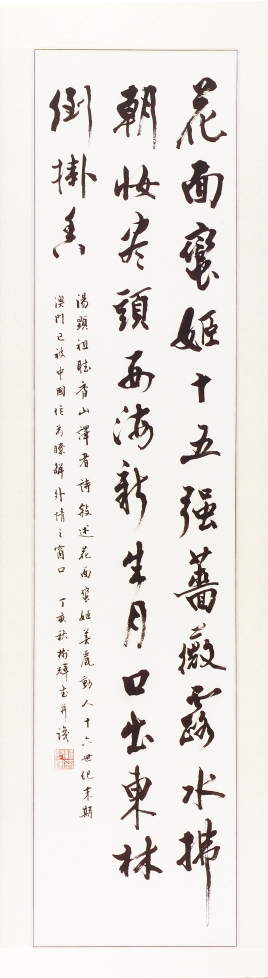 花面蠻姬十五强薔薇露水拂
朝妝尽頭西海新生月口出東林
倒掛香
湯顯祖聽香山譯者詩敘述花面蠻姬美麗動人十六世紀末期
澳門已被中國作為瞭解外情之窗口 丁亥秋 輝書并識